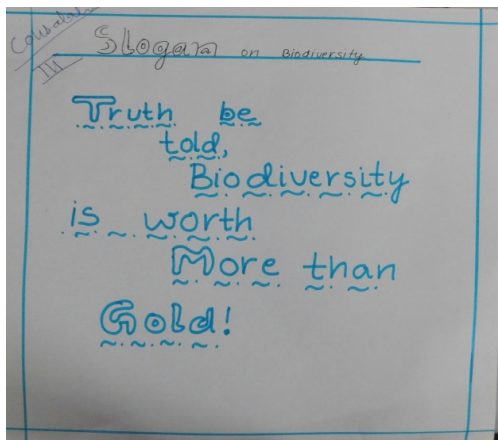 III
Slogan on Biodiversity
Truth be
told,
Biodiversity
is worth
More than
Gold!